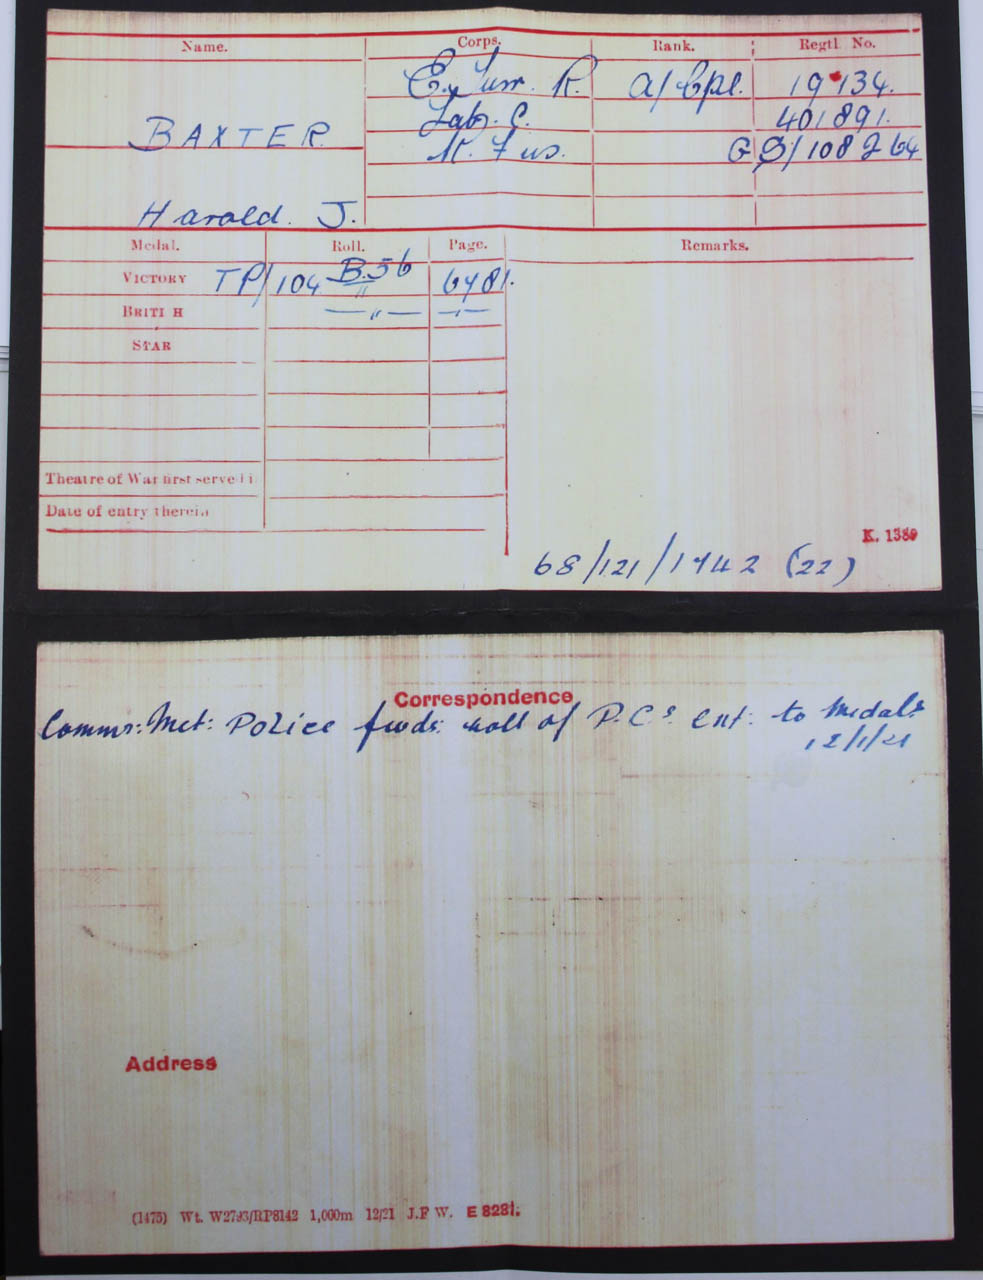 Name. Corps. Rank. Regtl. No.
E. Surr. R. A/Cpl. 19134.
Lab. C. 401891.
BAXTER R. Fus. GS/108264
Harold. J.
Medal. Roll. Page. Remarks.
VICTORY TP/104 B.56 6481.
BRITI H — " — — " —
STAR
Theatre of War first serve i
Date of entry therein
K. 1380
68/121/1942 (22)
Correspondence
Commr: Met: Police fwds: roll of P.Cs. ent: to medals
12/1/21
Address
(1475) Wt. W2793/RP8142 1,000m 12/21 J.F W. E 8281.